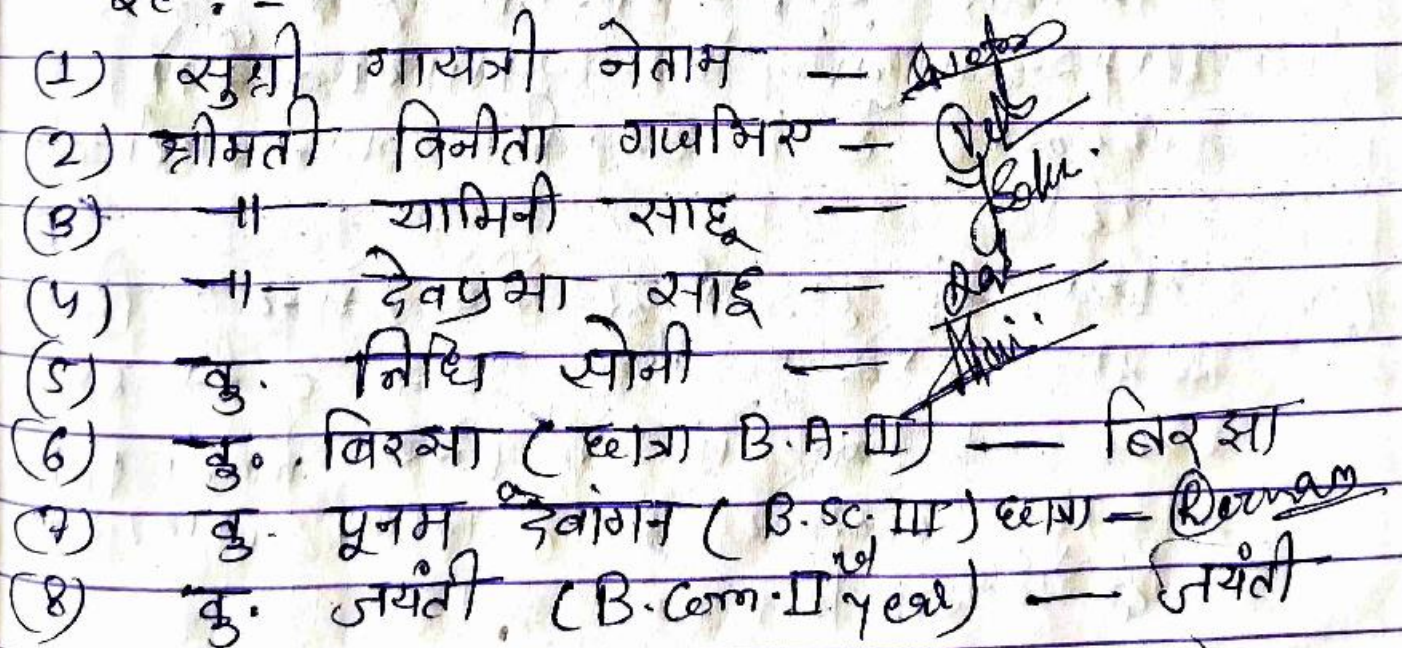 (1) सुश्री गायत्री नेताम —
(2) श्रीमती विनीता गजभिए —
(3) —॥— यामिनी साहू —
(4) —॥— देवप्रभा साहू —
(5) कु. निधि सोनी —
(6) कु. बिरसा (छात्रा B.A.III) — बिरसा
(7) कु. पूनम देवांगन (B.SC.III) छात्रा —
(8) कु. जयंती (B.Com.II year) — जयंती